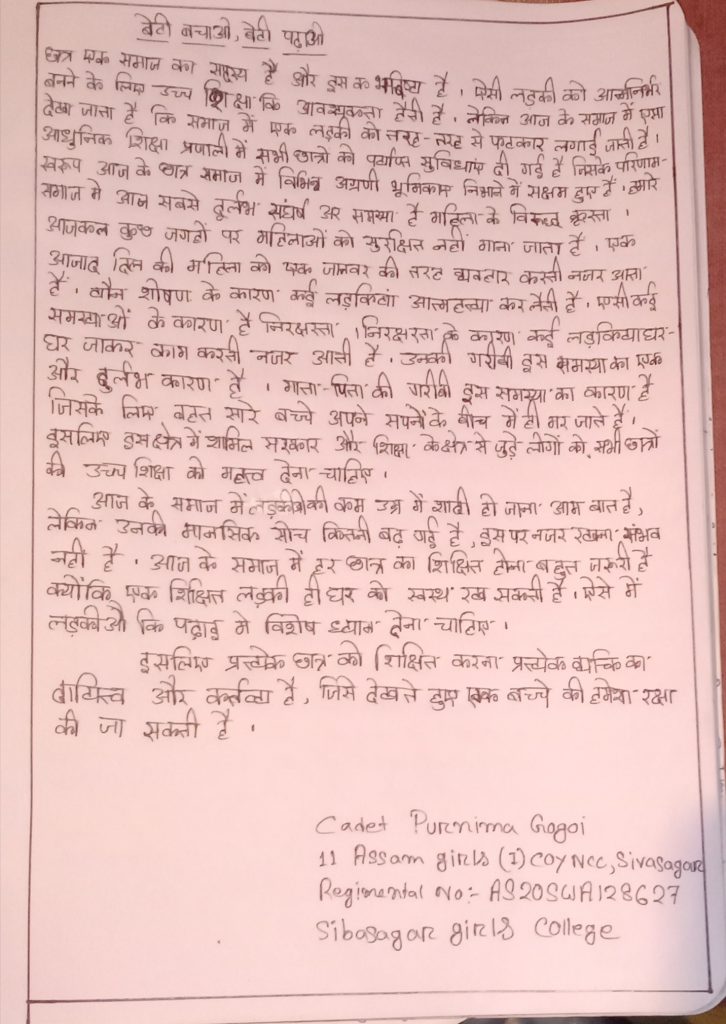 बेटी बचाओ, बेटी पढ़ाओ
छात्र एक समाज का सदस्य है और इस क भविष्य है। ऐसी लड़की को आत्मनिर्भर
बनने के लिए उच्च शिक्षा कि आवश्यकता हैती है। लेकिन आज के समाज में एसा
देखा जाता है कि समाज में एक लड़की को तरह-तरह से फटकार लगाई जाती है।
आधुनिक शिक्षा प्रणाली में सभी छात्रो को पर्याप्त सुविधाए दी गई है जिसके परिणाम-
स्वरूप आज के छात्र समाज में विभिन्न अग्रणी भूमिकाए निभाने में सक्षम हुए है। हमारे
समाज मे आज सबसे दुर्लभ संघर्ष अर समस्या है महिला के विरूद्ध क्रुरता।
आजकल कुछ जगहों पर महिलाओं को सुरक्षित नहीं माना जाता है। एक
आजाद दिल की महिला को एक जानवर की तरह व्यवहार करती नजर आता
है। यौन शोषण के कारण कई लड़किया आत्महत्या कर लेती है। एसी कई
समस्याओं के कारण है निरक्षरता। निरक्षरता के कारण कई लड़किया घर-
घर जाकर काम करती नजर आती है। उनकी गरीबी इस समस्या का एक
और दुर्लभ कारण है। माता-पिता की गरीबी इस समस्या का कारण है
जिसके लिए बहत सारे बच्चे अपने सपनों के बीच में ही मर जाते है।
इसलिए इस क्षेत्र में शामिल सरकार और शिक्षा के क्षेत्र से जुड़े लोगों को, सभी छात्रों
की उच्च शिक्षा को महत्व देना चाहिए।
आज के समाज में लड़कीयोकी कम उम्र में शादी हो जाना आम बात है,
लेकिन उनकी मानसिक सोच कितनी बढ़ गई है, इस पर नजर रखना संभव
नही है। आज के समाज में हर छात्र का शिक्षित होना बहुत जरूरी है
क्योंकि एक शिक्षित लड़की ही घर को स्वस्थ रख सकती है। ऐसे में
लड़कीओ कि पढ़ाइ मे विशेष ध्यान देना चाहिए।
इसलिए प्रत्येक छात्र को शिक्षित करना प्रत्येक व्यक्ति का
दायित्व और कर्तव्य है, जिसे देखते हुए एक बच्चे की हमेशा रक्षा
की जा सकती है।
Cadet Purnima Gogoi
11 Assam girls (I) COY NCC, Sivasagar
Regimental No:- AS20SWA128627
Sibasagar girls College